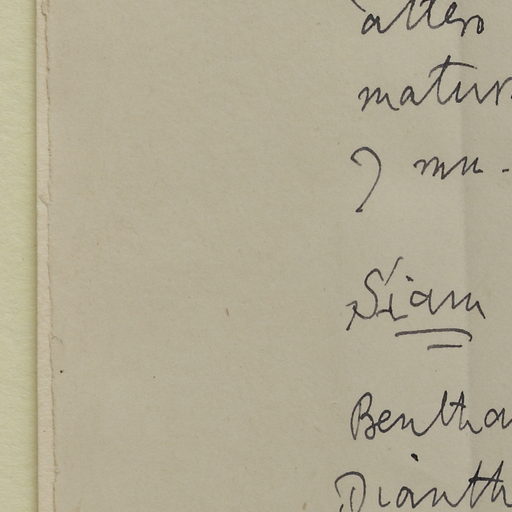 alters
matur
7 mm -
Siam
Bentha
Dianth